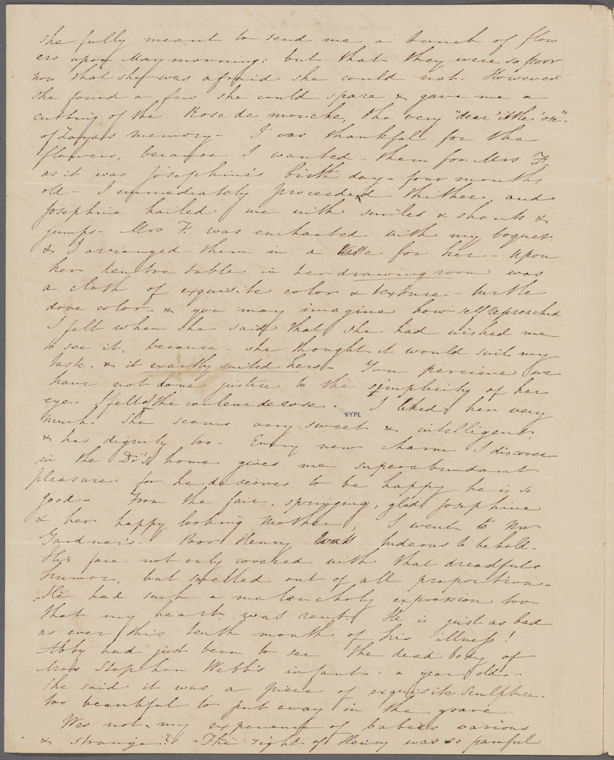 she fully meant to send me a bunch of flow
ers upon May morning; but that they were so poor
now that she was afraid she could not. However
she found a few she could spare & gave me a
cutting of the Rose de mouche, the very "dear little one"
of memory - I was thankful for the
flowers, because I wanted them for Mrs F.
as it was Josephine's birth day - four months
old - I immediately proceeded thither, and
Josephine hailed me with smiles & shouts &
jumps. Mrs F. was enchanted with my boquet
& I arranged them in a for her - Upon
her centre table in her drawing room was
a cloth of exquisite color & texture - turtle
dove color - & you may imagine how self reproached
I felt when she said that she had wished me
to see it, because she thought it would suit my
taste. & it exactly suited hers - You perceive we
have not done justice to the simplicity of her
eye - I felt the couleur de rose. I liked her very
much. She seems very sweet & intelligent
& has dignity too. Every new charm I discover
in the Dr's home gives me superabundant
pleasure, for he deserves to be happy he is so
good - From the fair, springing, glad Josephine
& her happy looking Mother, I went to Mrs
Gardner's. Poor Henry was hideous to behold.
His face not only covered with that dreadful
humor, but swelled out of all proportion.
He had such a melancholy expression too
that my heart was rent. He is just as bad
as ever this tenth month of his illness!
Abby had just been to see the dead body of
Mrs Stephen Webb's infant - a year old -
She said it was a piece of exquisite sculpture.
too beautiful to put away in the grave
Was not my experience of babies various
& strange? - The sight of Henry was so painful
NYPL